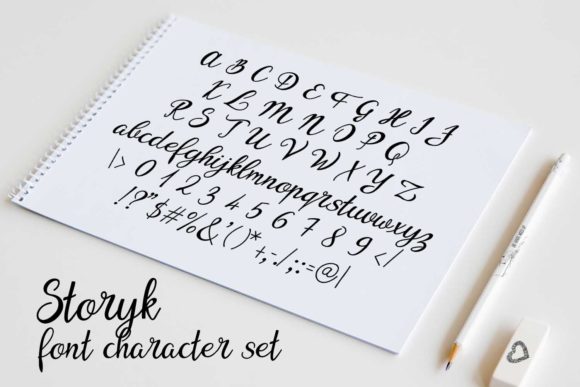 A B C D E F G H I J
K L M N O P Q
R S T U V W X Y Z
abcdefghijklmnopqrstuvwxyz
|> 0 1 2 3 4 5 6 7 8 9 <|
!?"$#%&'()*
+,-./;:=@|
Storyk
font character set